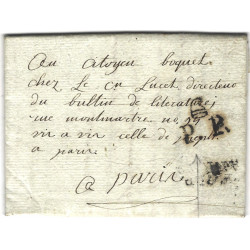 au citoyen boquet
chez Le Cn Lucet directeur
du bultin de literatures
rue montmartre no
vis a vis celle de
a paris
a paris
P. P.